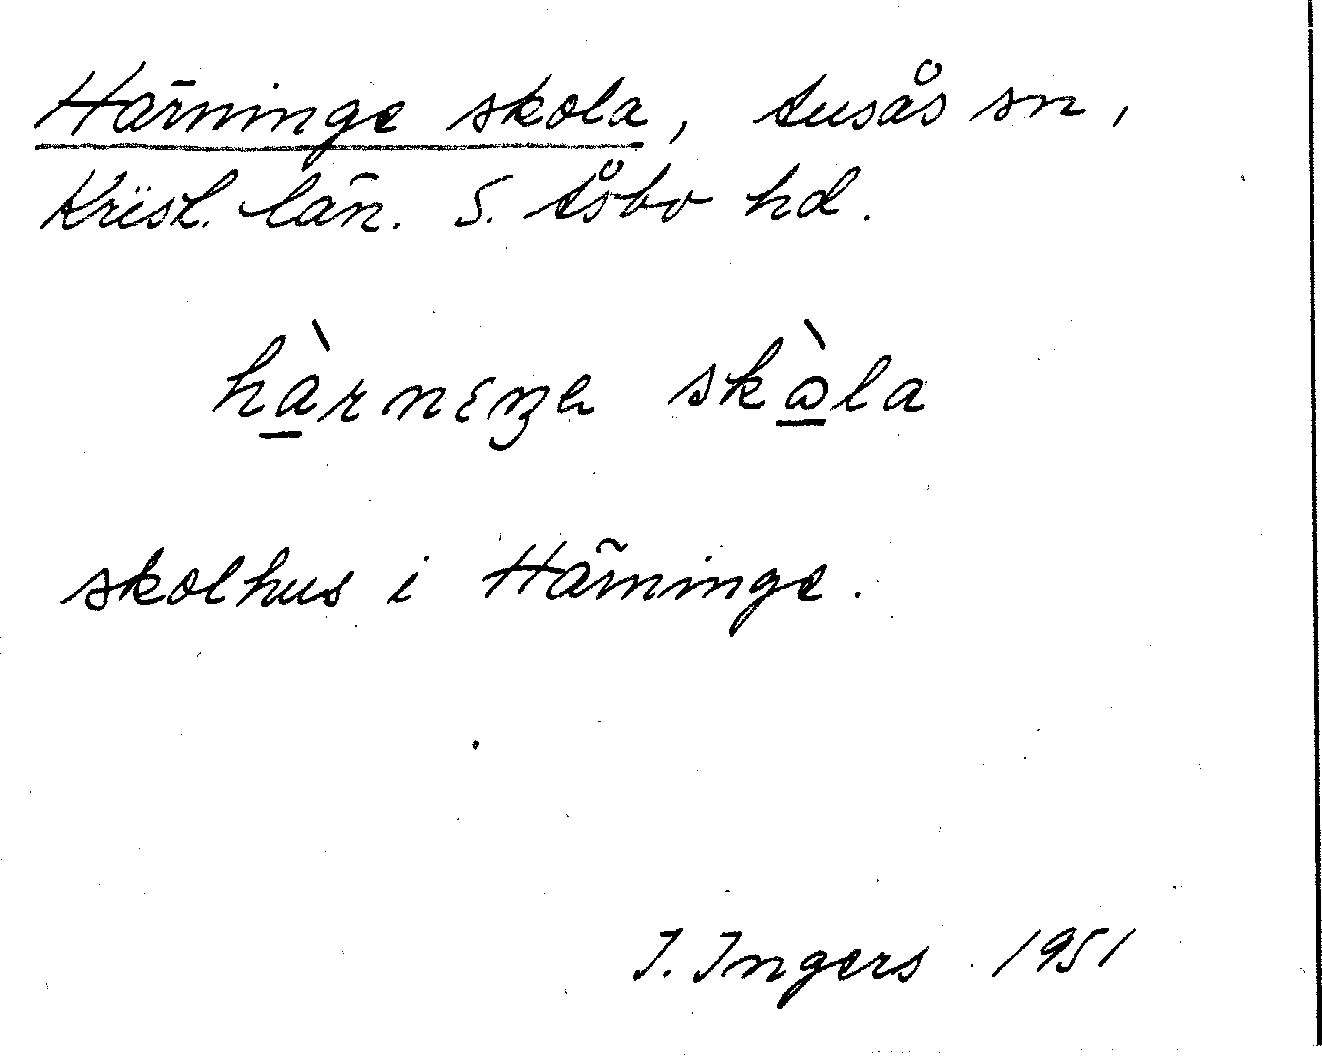 Härninge skola, Ausås sn,
Krist. län. S. Åsbo hd.
hà̱rnɩŋə skɷ̱̀la
skolhus i Härninge.
I. Ingers 1951